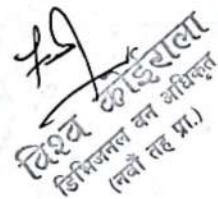 विश्व कोइराला
डिभिजनल वन अधिकृत
(नवौं तह प्रा.)